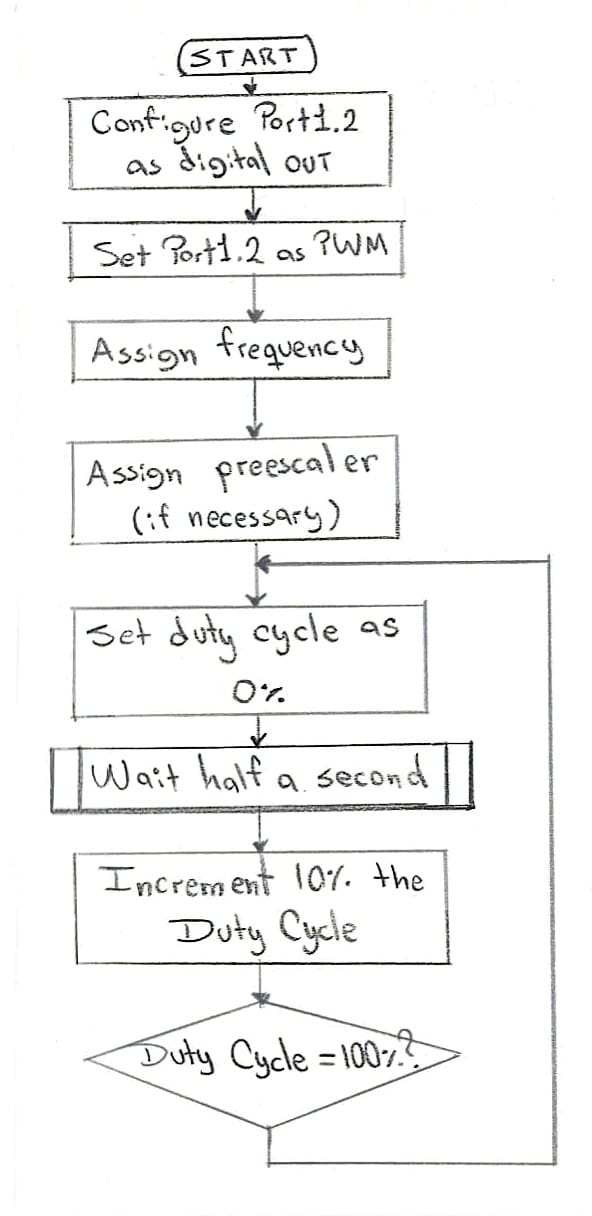 START
Configure Port1.2
as digital OUT
Set Port1.2 as PWM
Assign frequency
Assign preescaler
(if necessary)
Set duty cycle as
0%
Wait half a second
Increment 10% the
Duty Cycle
Duty Cycle = 100%?